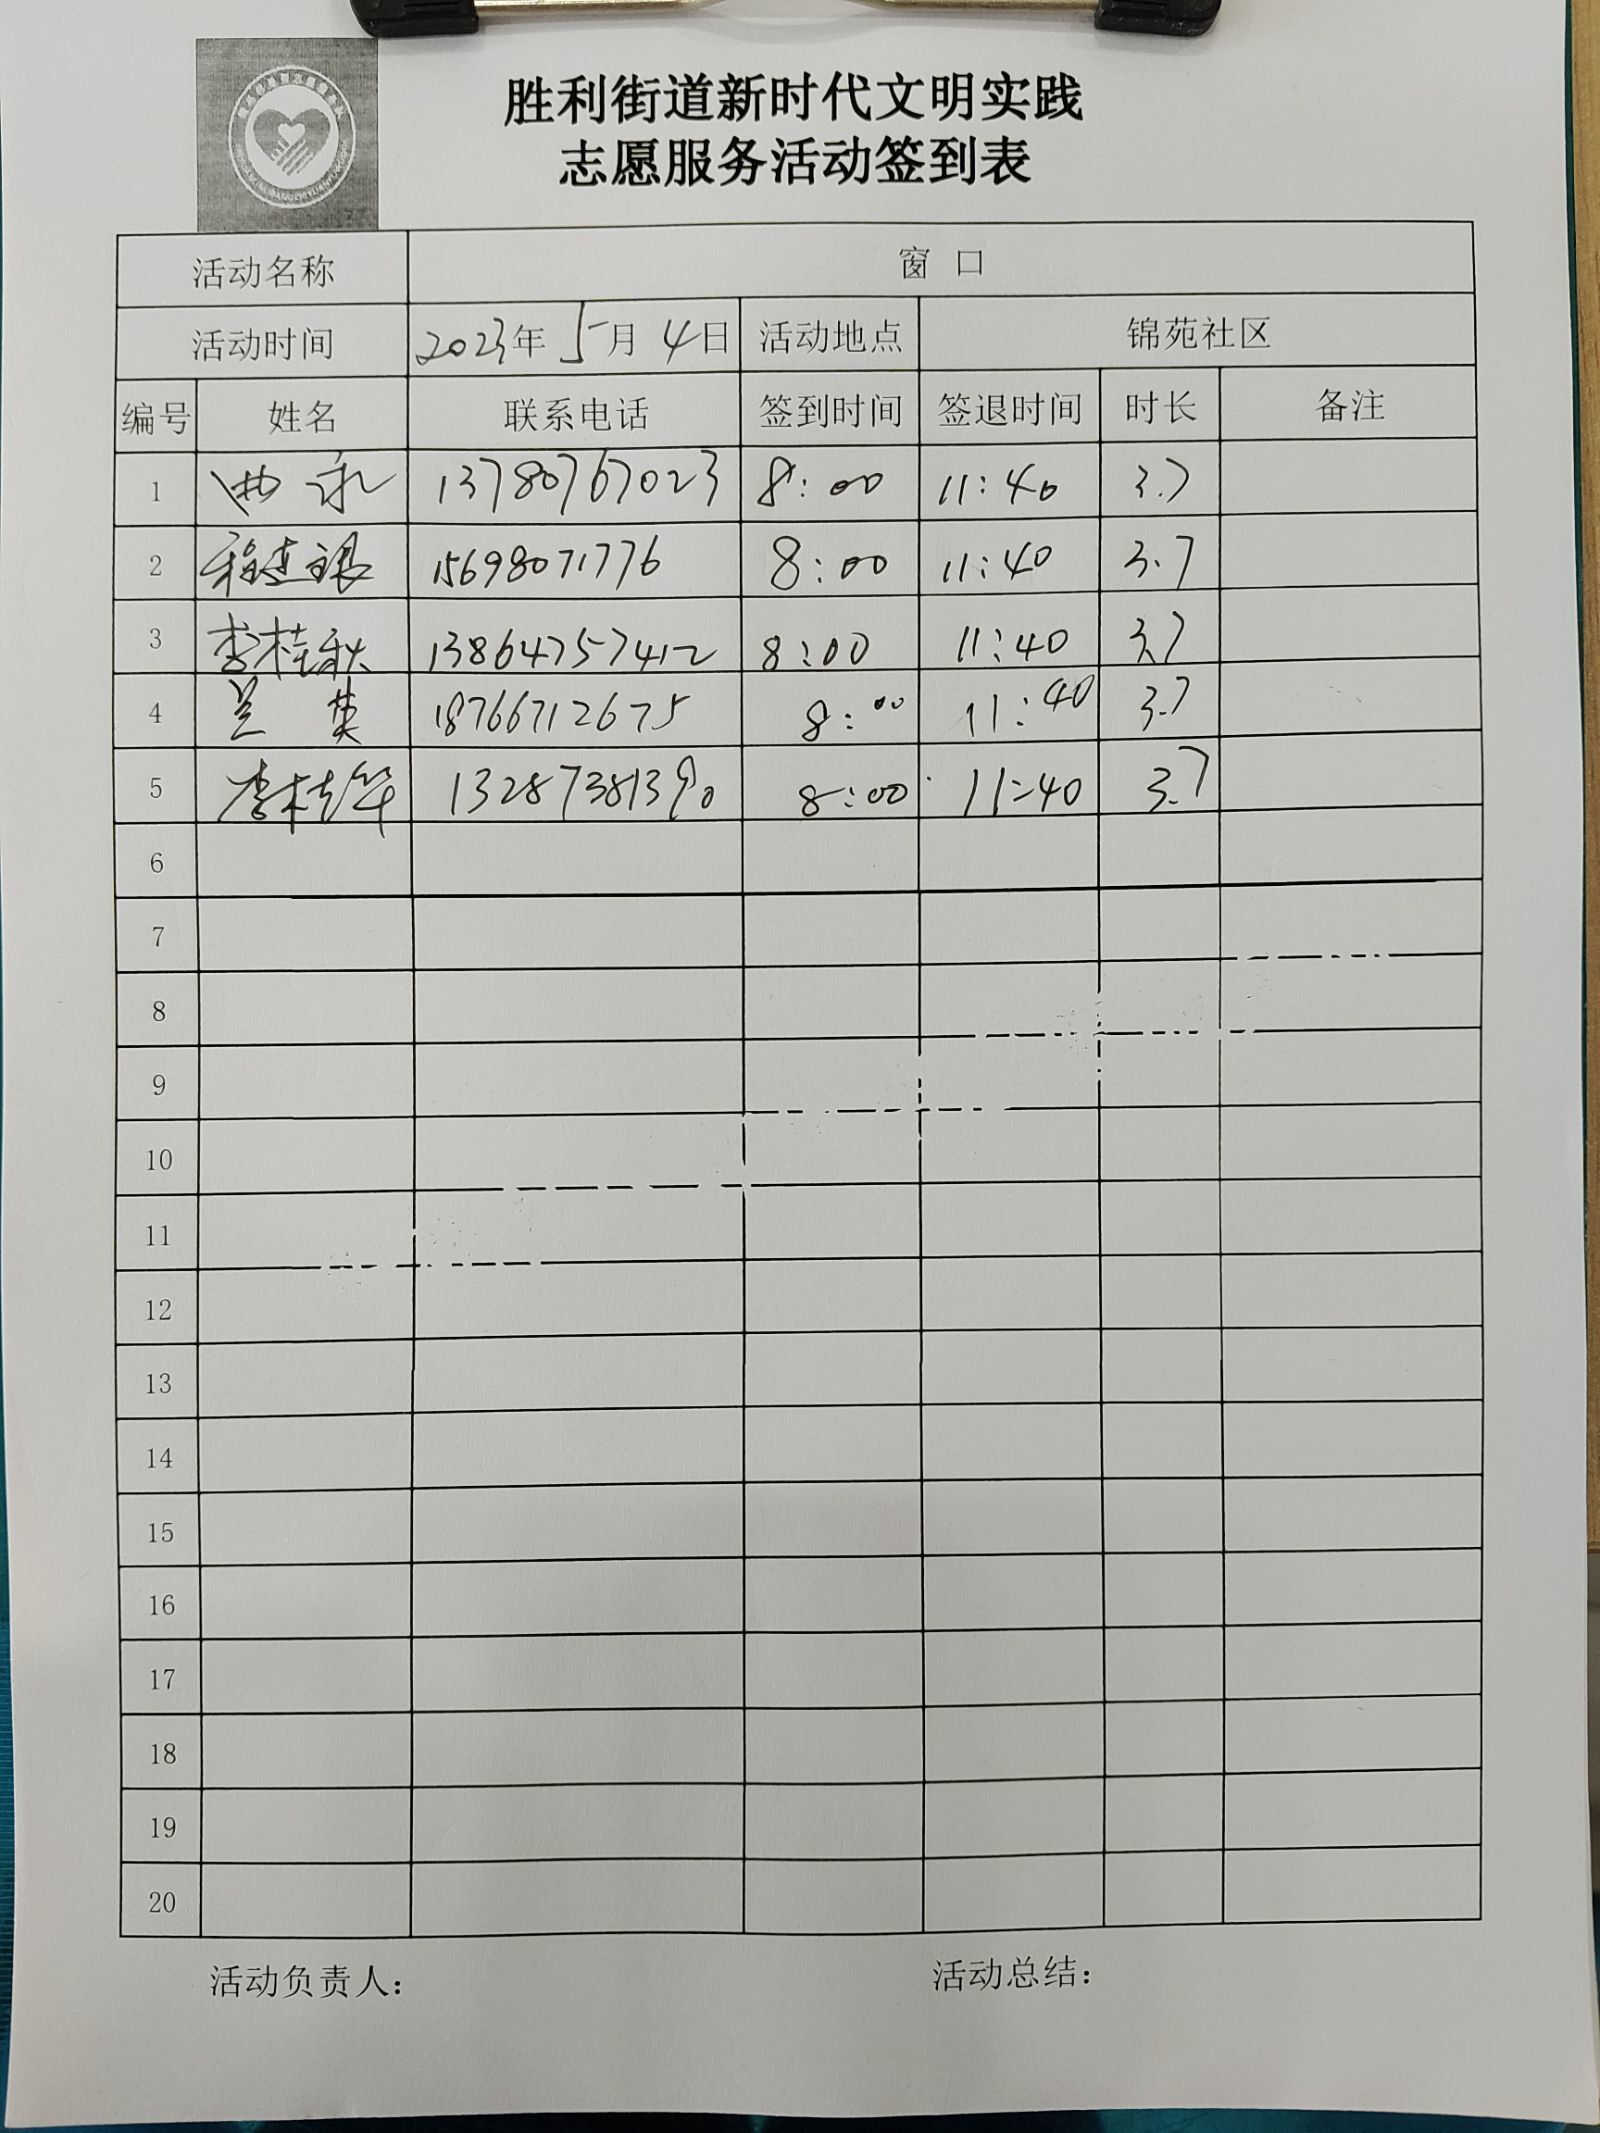 胜利街道新时代文明实践
志愿服务活动签到表
活动名称 窗 口
活动时间 2023年 5月 4日 活动地点 锦苑社区
编号 姓名 联系电话 签到时间 签退时间 时长 备注
1 13780767023 8:00 11:40 3.7
2 15698071776 8:00 11:40 3.7
3 李桂秋 13864757412 8:00 11:40 3.7
4 兰英 18766712675 8:00 11:40 3.7
5 李桂华 13287381390 8:00 11:40 3.7
6
7
8
9
10
11
12
13
14
15
16
17
18
19
20
活动负责人： 活动总结：